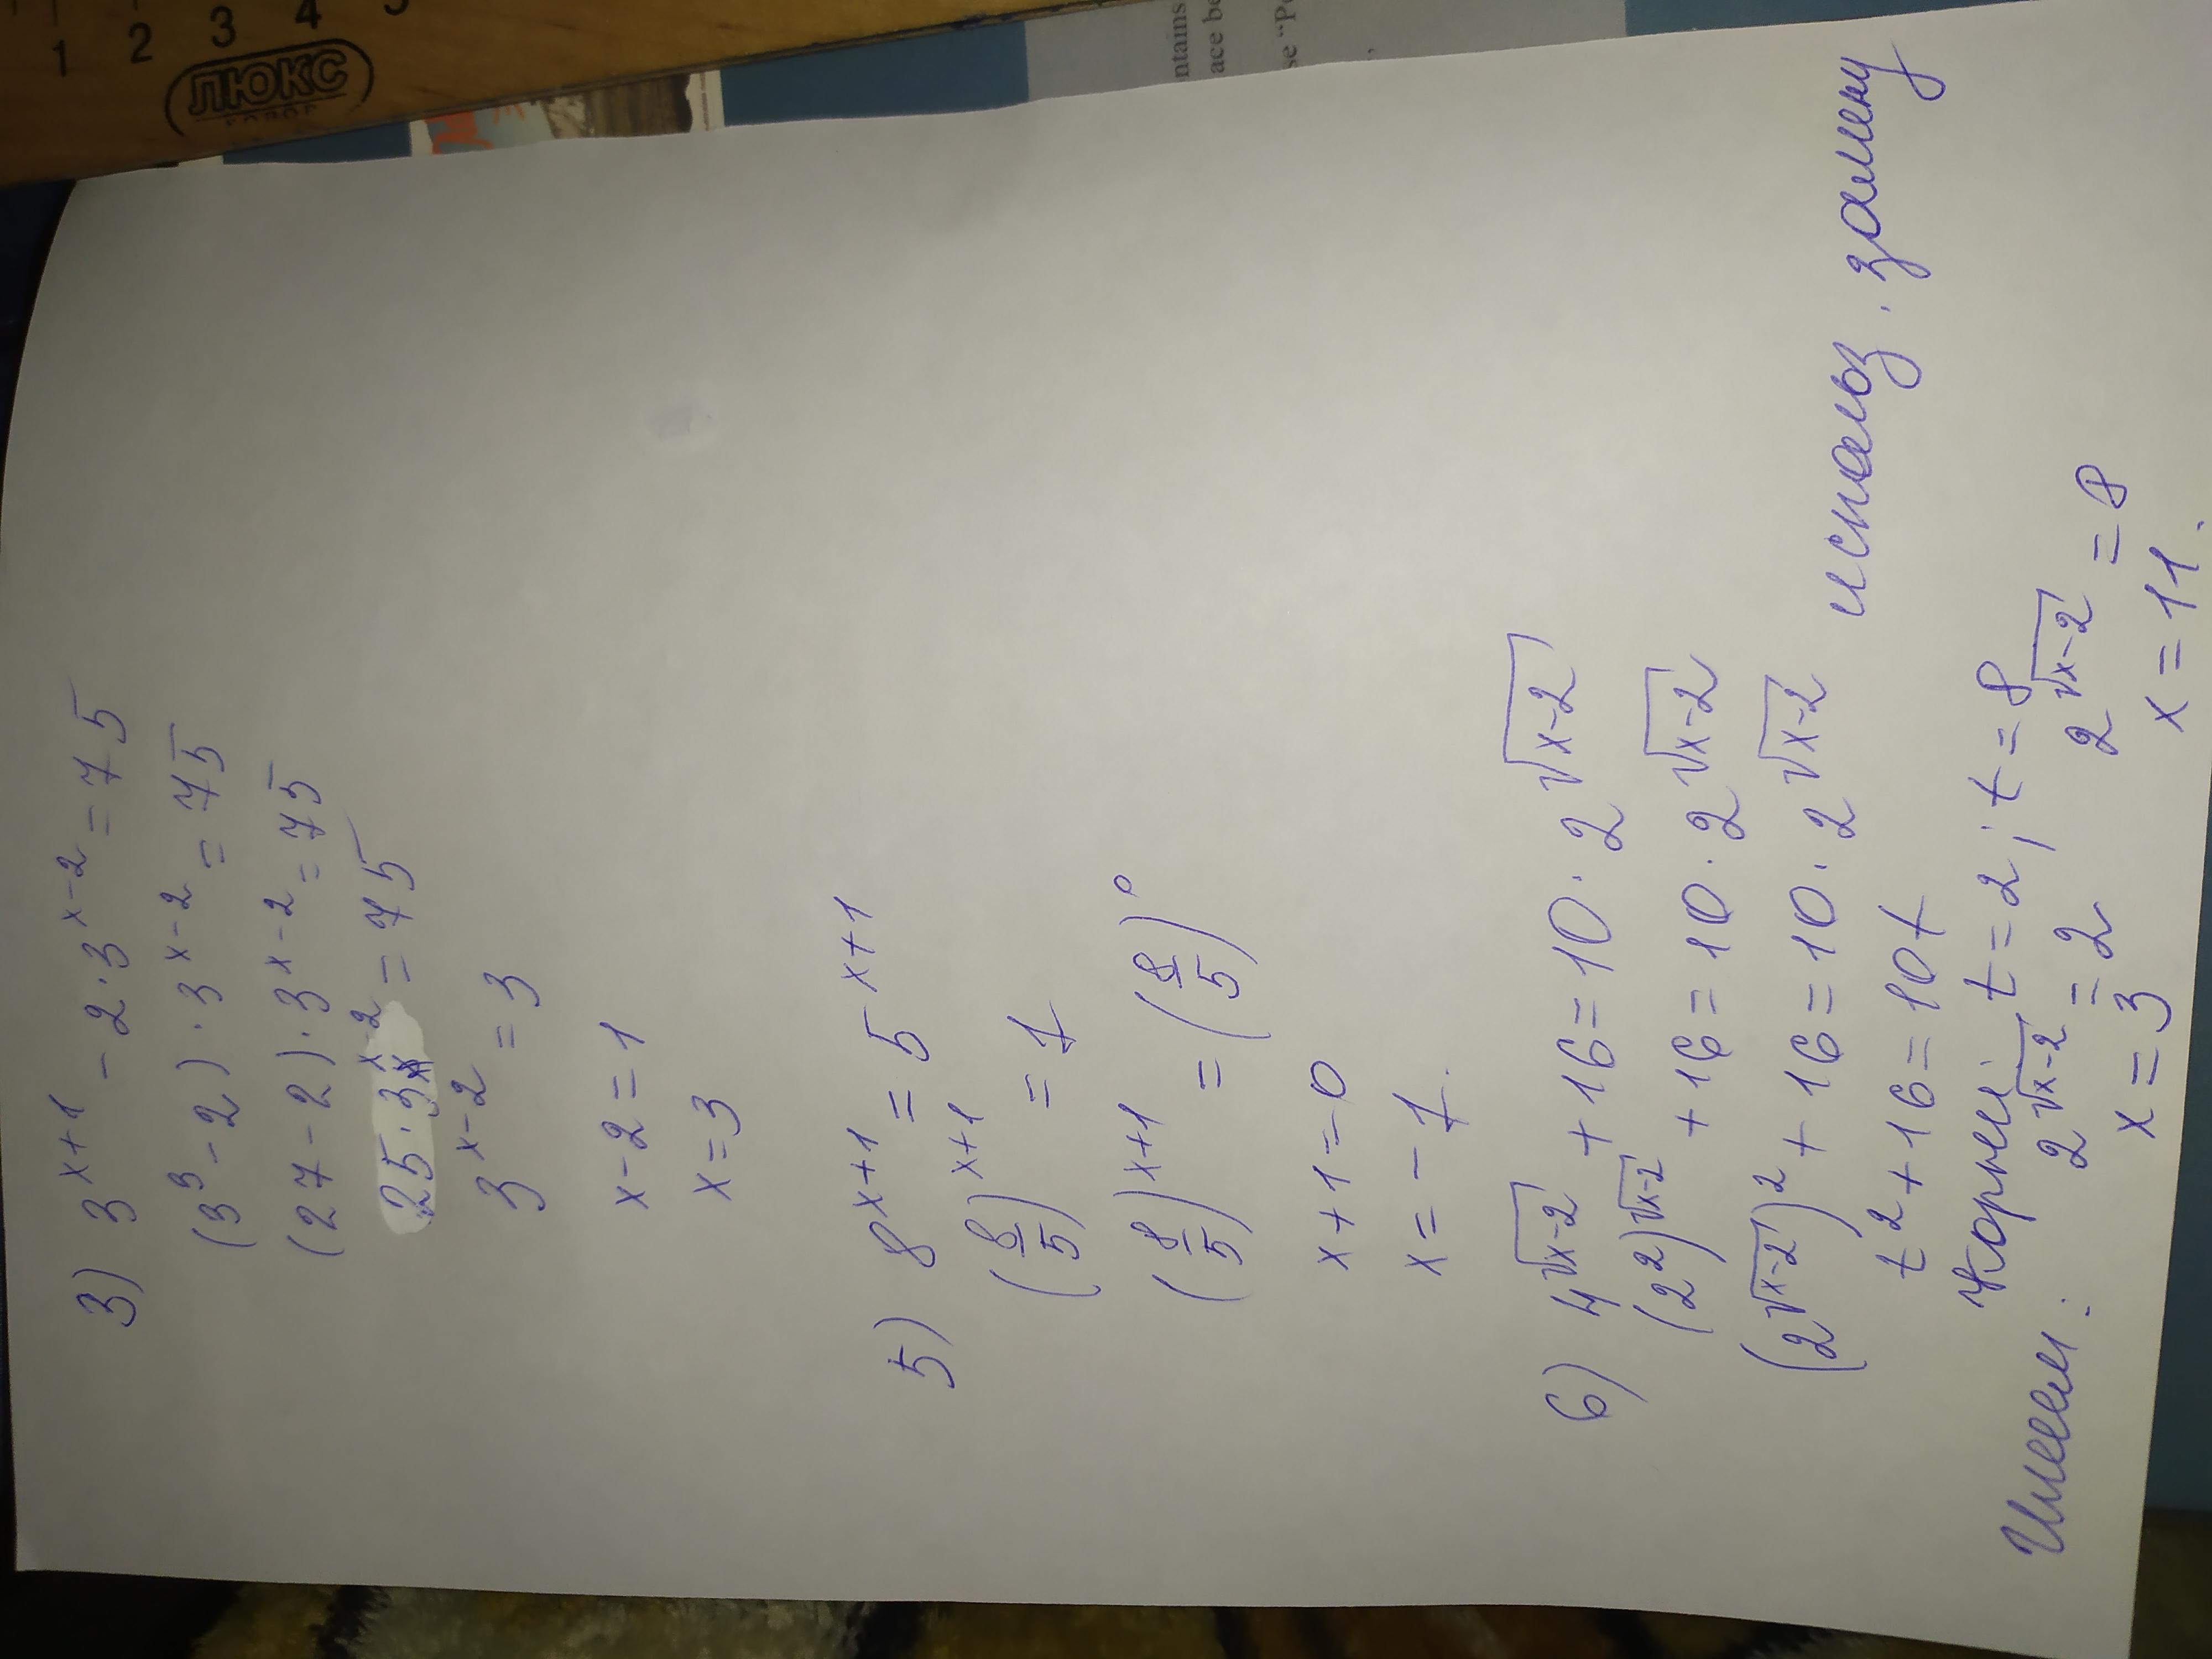 1 2 3 4 5
ЛЮКС
ntains
ace be
se “P
3) 3^{x+1} - 2·3^{x-2} = 75
(3^3 - 2)·3^{x-2} = 75
(27 - 2)·3^{x-2} = 75
25·3^{x-2} = 75
3^{x-2} = 3
x - 2 = 1
x = 3
5) 8^{x+1} = 5^{x+1}
(8/5)^{x+1} = 1
(8/5)^{x+1} = (8/5)^0
x + 1 = 0
x = -1.
6) 4^{√(x-2)} + 16 = 10·2^{√(x-2)}
(2^2)^{√(x-2)} + 16 = 10·2^{√(x-2)}
(2^{√(x-2)})^2 + 16 = 10·2^{√(x-2)} использ. замену
t^2 + 16 = 10t
Корни: t = 2; t = 8
Имеем: 2^{√(x-2)} = 2 2^{√(x-2)} = 8
x = 3 x = 11.